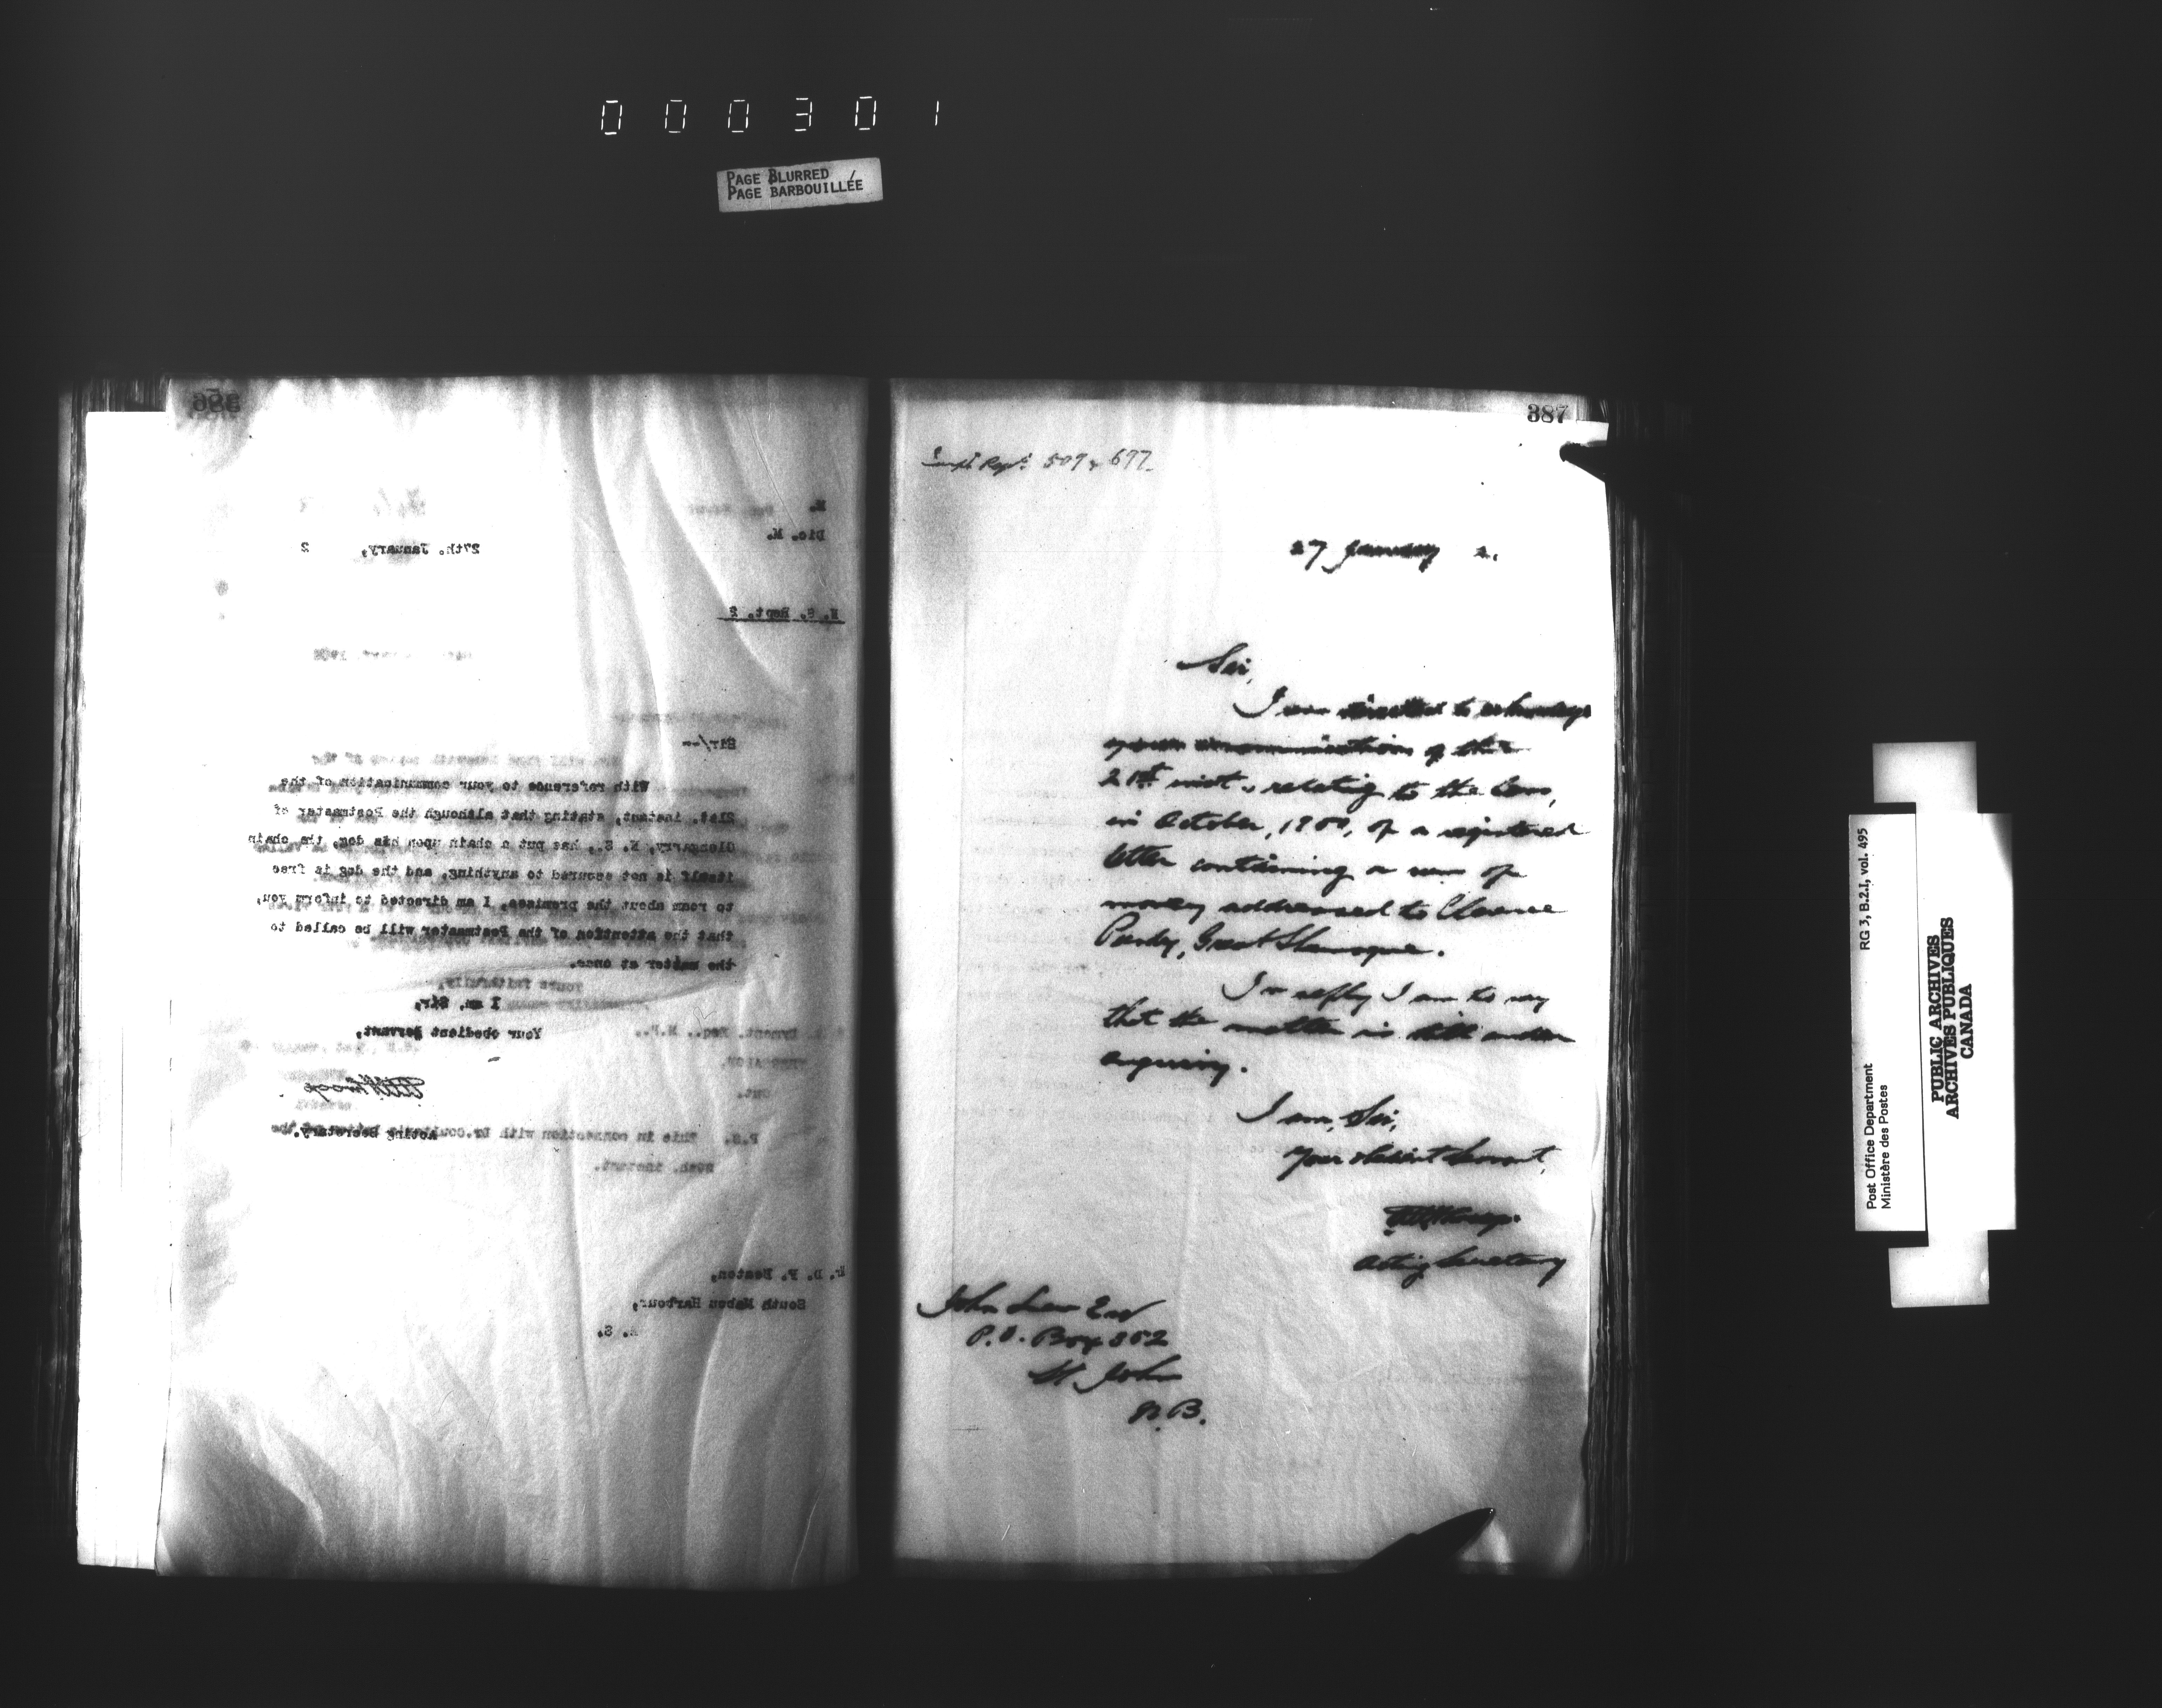 000301
PAGE BLURRED /
PAGE BARBOUILLÉE
386
E.
Dic. M.
27th. January, 2
N. S. Rept. 2
Sir/--
With reference to your communication of the
21st. instant, stating that although the Postmaster of
Glengarry, N. S., has put a chain upon his dog, the chain
itself is not secured to anything, and the dog is free
to roam about the premises, I am directed to inform you,
that the attention of the Postmaster will be called to
the matter at once.
I am, Sir,
Your obedient servant,
Acting Secretary.
Mr. D. F. Beaton,
South Mabou Harbour,
N. S.
Yours faithfully,
Dyment, Esq., M.P.,
Ont.
P.S. This in connection with Dr. of the
instant.
387
Rept. 509 & 697
27 January 2.
Sir,
I am directed to acknowledge
your communication of the
21st inst., relating to the loss,
in October, 1900, of a registered
letter containing a sum of
money addressed to Clarence
Purdy, Great Shemogue.
In reply I am to say
that the matter is still under
enquiry.
I am, Sir,
Your obedient Servant,
Acting Secretary
John Esq
P.O. Box 352
St John
N.B.
RG 3, B.2.1, vol. 495
Post Office Department
Ministère des Postes
PUBLIC ARCHIVES
ARCHIVES PUBLIQUES
CANADA